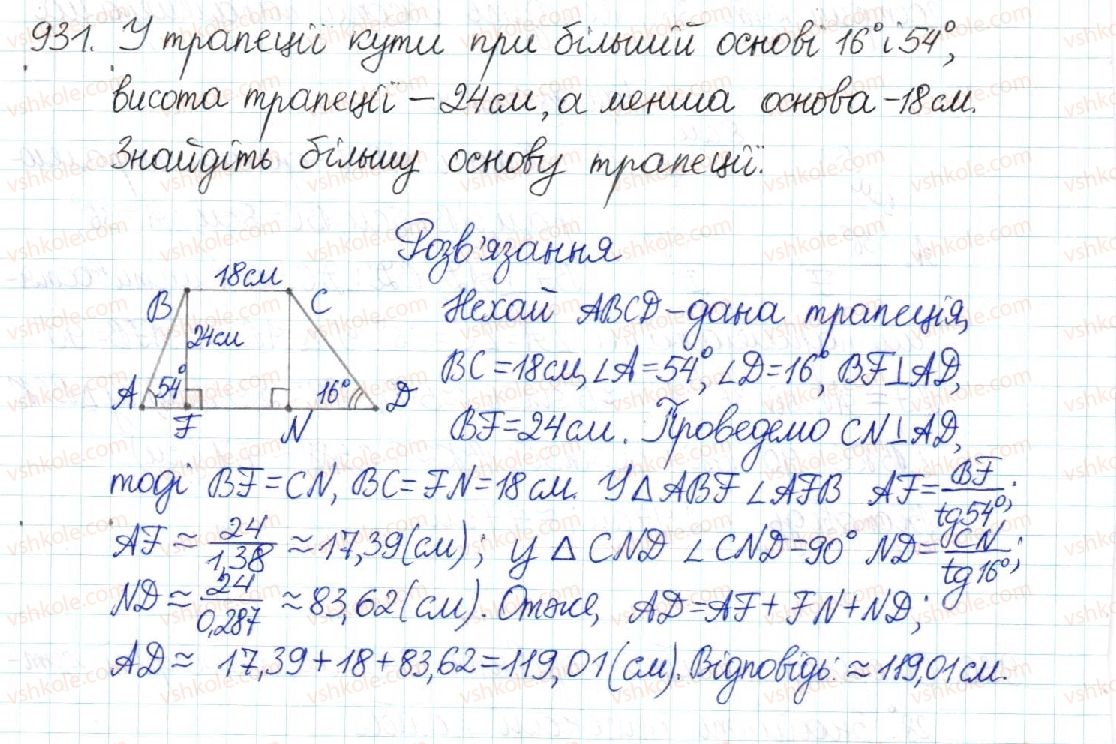 931. У трапеції кути при більшій основі 16° і 54°,
висота трапеції – 24 см, а менша основа – 18 см.
Знайдіть більшу основу трапеції.
Розв'язання
18 см
B C
24 см
A 54° 16° D
F N
Нехай ABCD – дана трапеція,
BC = 18 см, ∠A = 54°, ∠D = 16°, BF ⊥ AD,
BF = 24 см. Проведемо CN ⊥ AD,
тоді BF = CN, BC = FN = 18 см. У △ ABF ∠AFB AF = BF/tg 54°;
AF ≈ 24/1,38 ≈ 17,39 (см); у △ CND ∠CND = 90° ND = CN/tg 16°;
ND ≈ 24/0,287 ≈ 83,62 (см). Отже, AD = AF + FN + ND;
AD ≈ 17,39 + 18 + 83,62 = 119,01 (см). Відповідь: ≈ 119,01 см.
vshkole.com